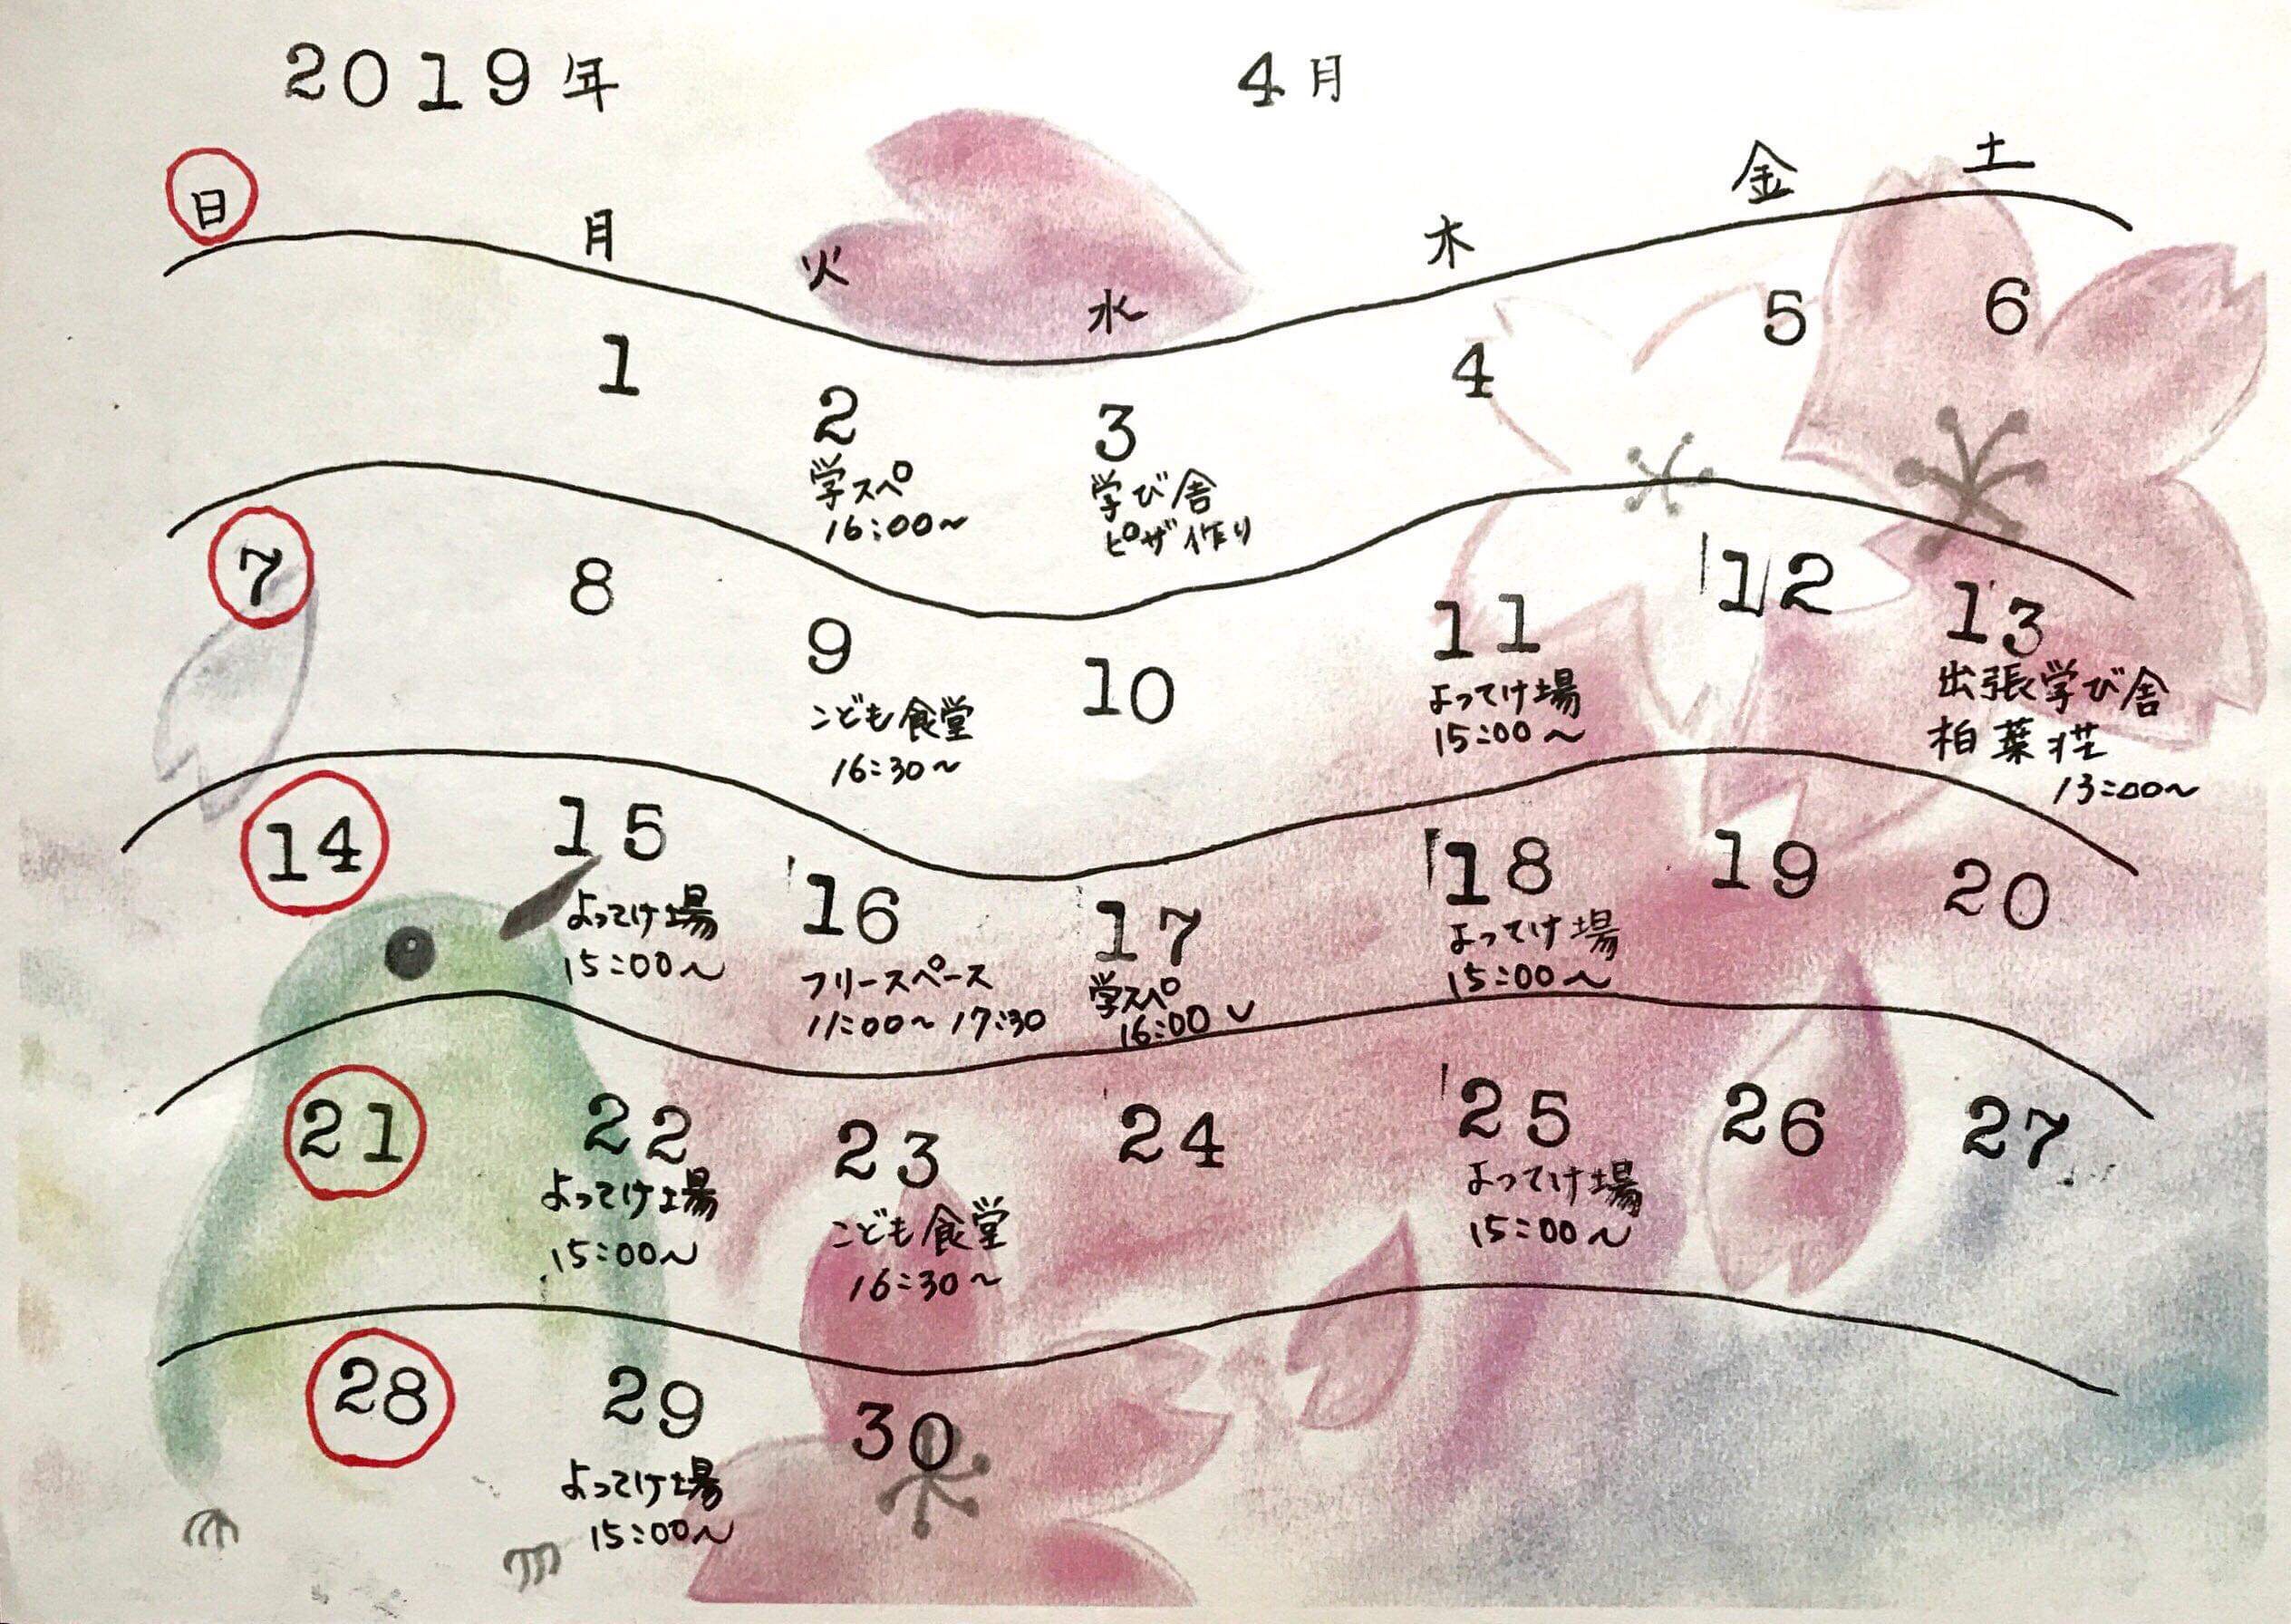 2019年 4月
日 月 火 水 木 金 土
1 2 3 4 5 6
学スペ
16:00~
学び舎
ピザ作り
7 8 9 10 11 12 13
こども食堂
16:30~
よってけ場
15:00~
出張学び舎
柏葉荘
13:00~
14 15 16 17 18 19 20
よってけ場
15:00~
フリースペース
11:00~17:30
学スペ
16:00~
よってけ場
15:00~
21 22 23 24 25 26 27
よってけ場
15:00~
こども食堂
16:30~
よってけ場
15:00~
28 29 30
よってけ場
15:00~